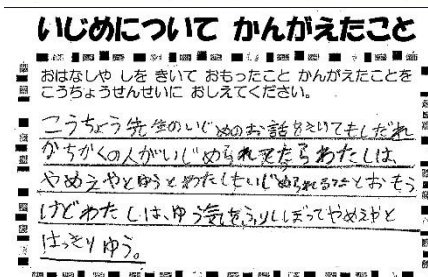 いじめについて かんがえたこと
おはなしや しを きいて おもったこと かんがえたことを
こうちょうせんせいに おしえてください。
こうちょう先生のいじめのお話をきいてもしだれ
かちがくの人がいじめられてたらわたしは、
やめえやとゆうとわたしもいじめられることおもう
けどわたしは、ゆう気をふりしぼってやめえやと
はっきりゆう。